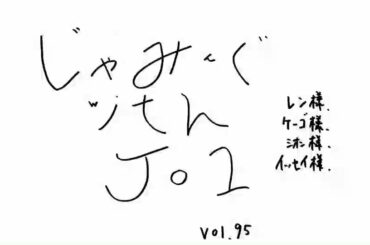 じゃみ〜ぐ
ッせん
Jo1
レン様.
ケーゴ様.
ミオン様.
イッセイ様.
vol.95